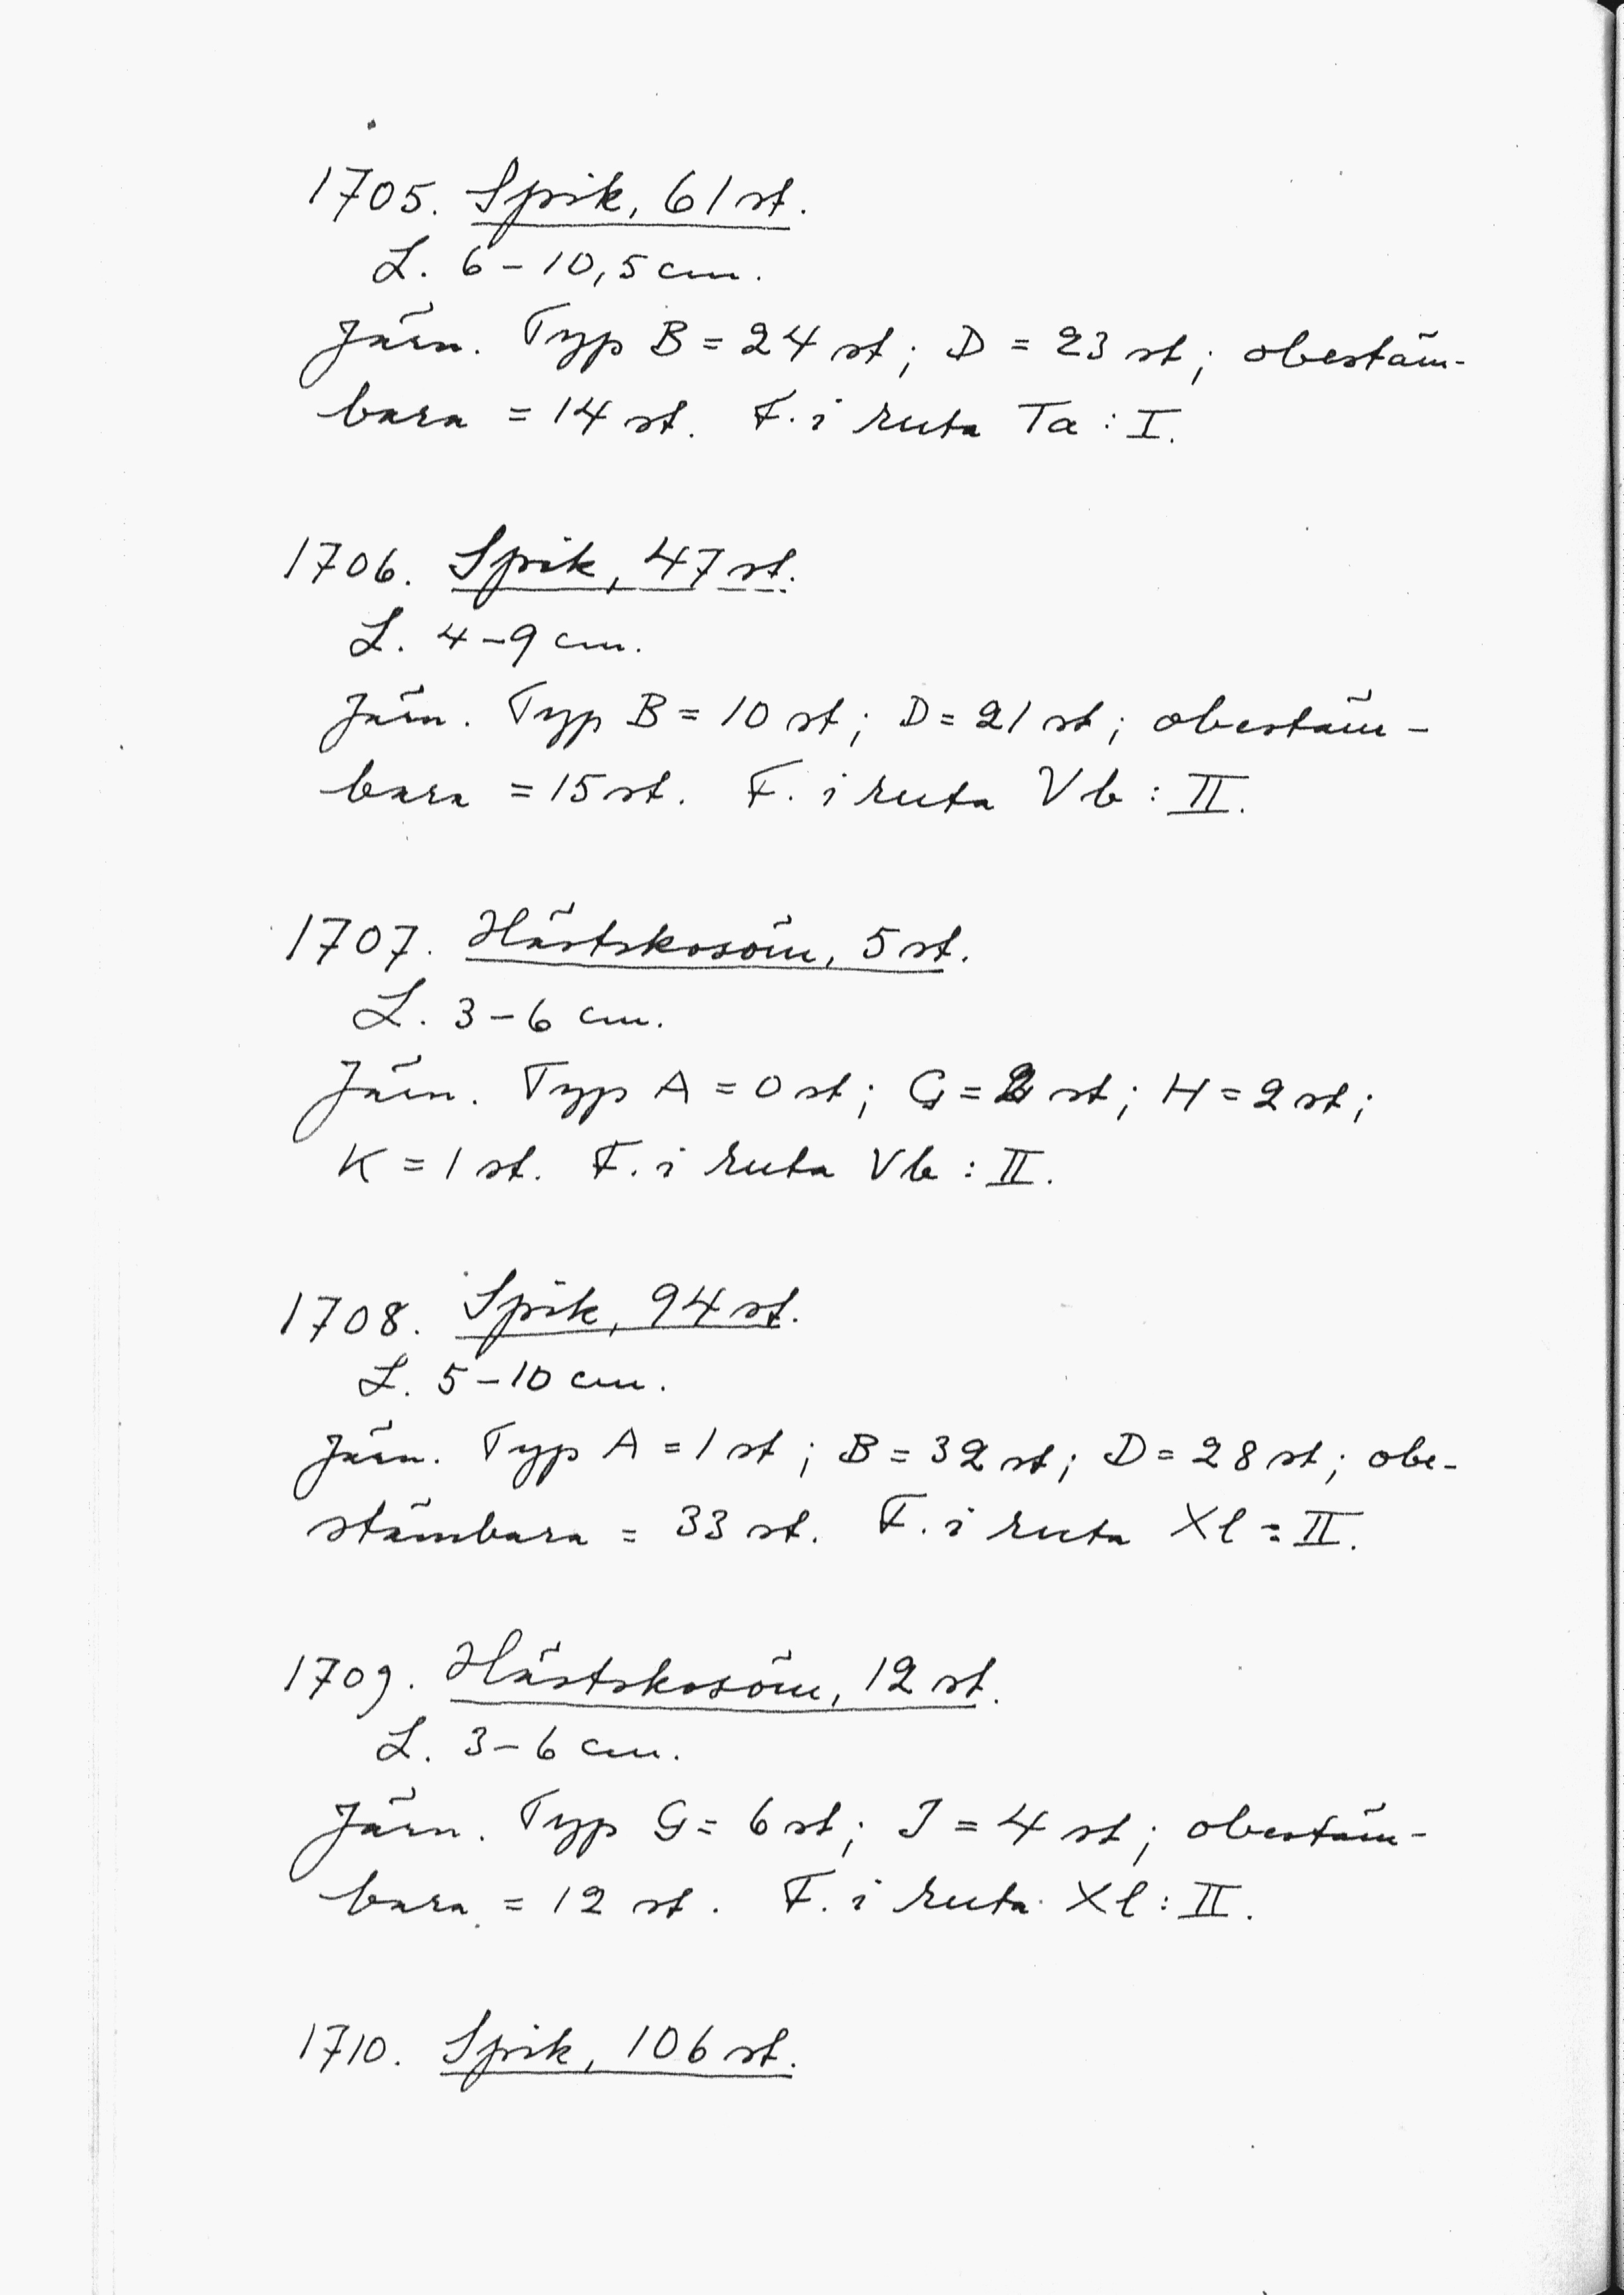 1705. Spik, 61 st.
L. 6-10,5 cm.
Järn. Typ B = 24 st; D = 23 st; obestäm-
bara = 14 st. F. i ruta Ta : I.
1706. Spik, 47 st.
L. 4-9 cm.
Järn. Typ B = 10 st; D = 21 st; obestäm-
bara = 15 st. F. i ruta Vb : II.
1707. Hästskosöm, 5 st.
L. 3-6 cm.
Järn. Typ A = 0 st; G = 2 st; H = 2 st;
K = 1 st. F. i ruta Vb : II.
1708. Spik, 94 st.
L. 5-10 cm.
Järn. Typ A = 1 st; B = 32 st; D = 28 st; obe-
stämbara = 33 st. F. i ruta Xl = II.
1709. Hästskosöm, 12 st.
L. 3-6 cm.
Järn. Typ G = 6 st; J = 4 st; obestäm-
bara = 12 st. F. i ruta Xl : II.
1710. Spik, 106 st.